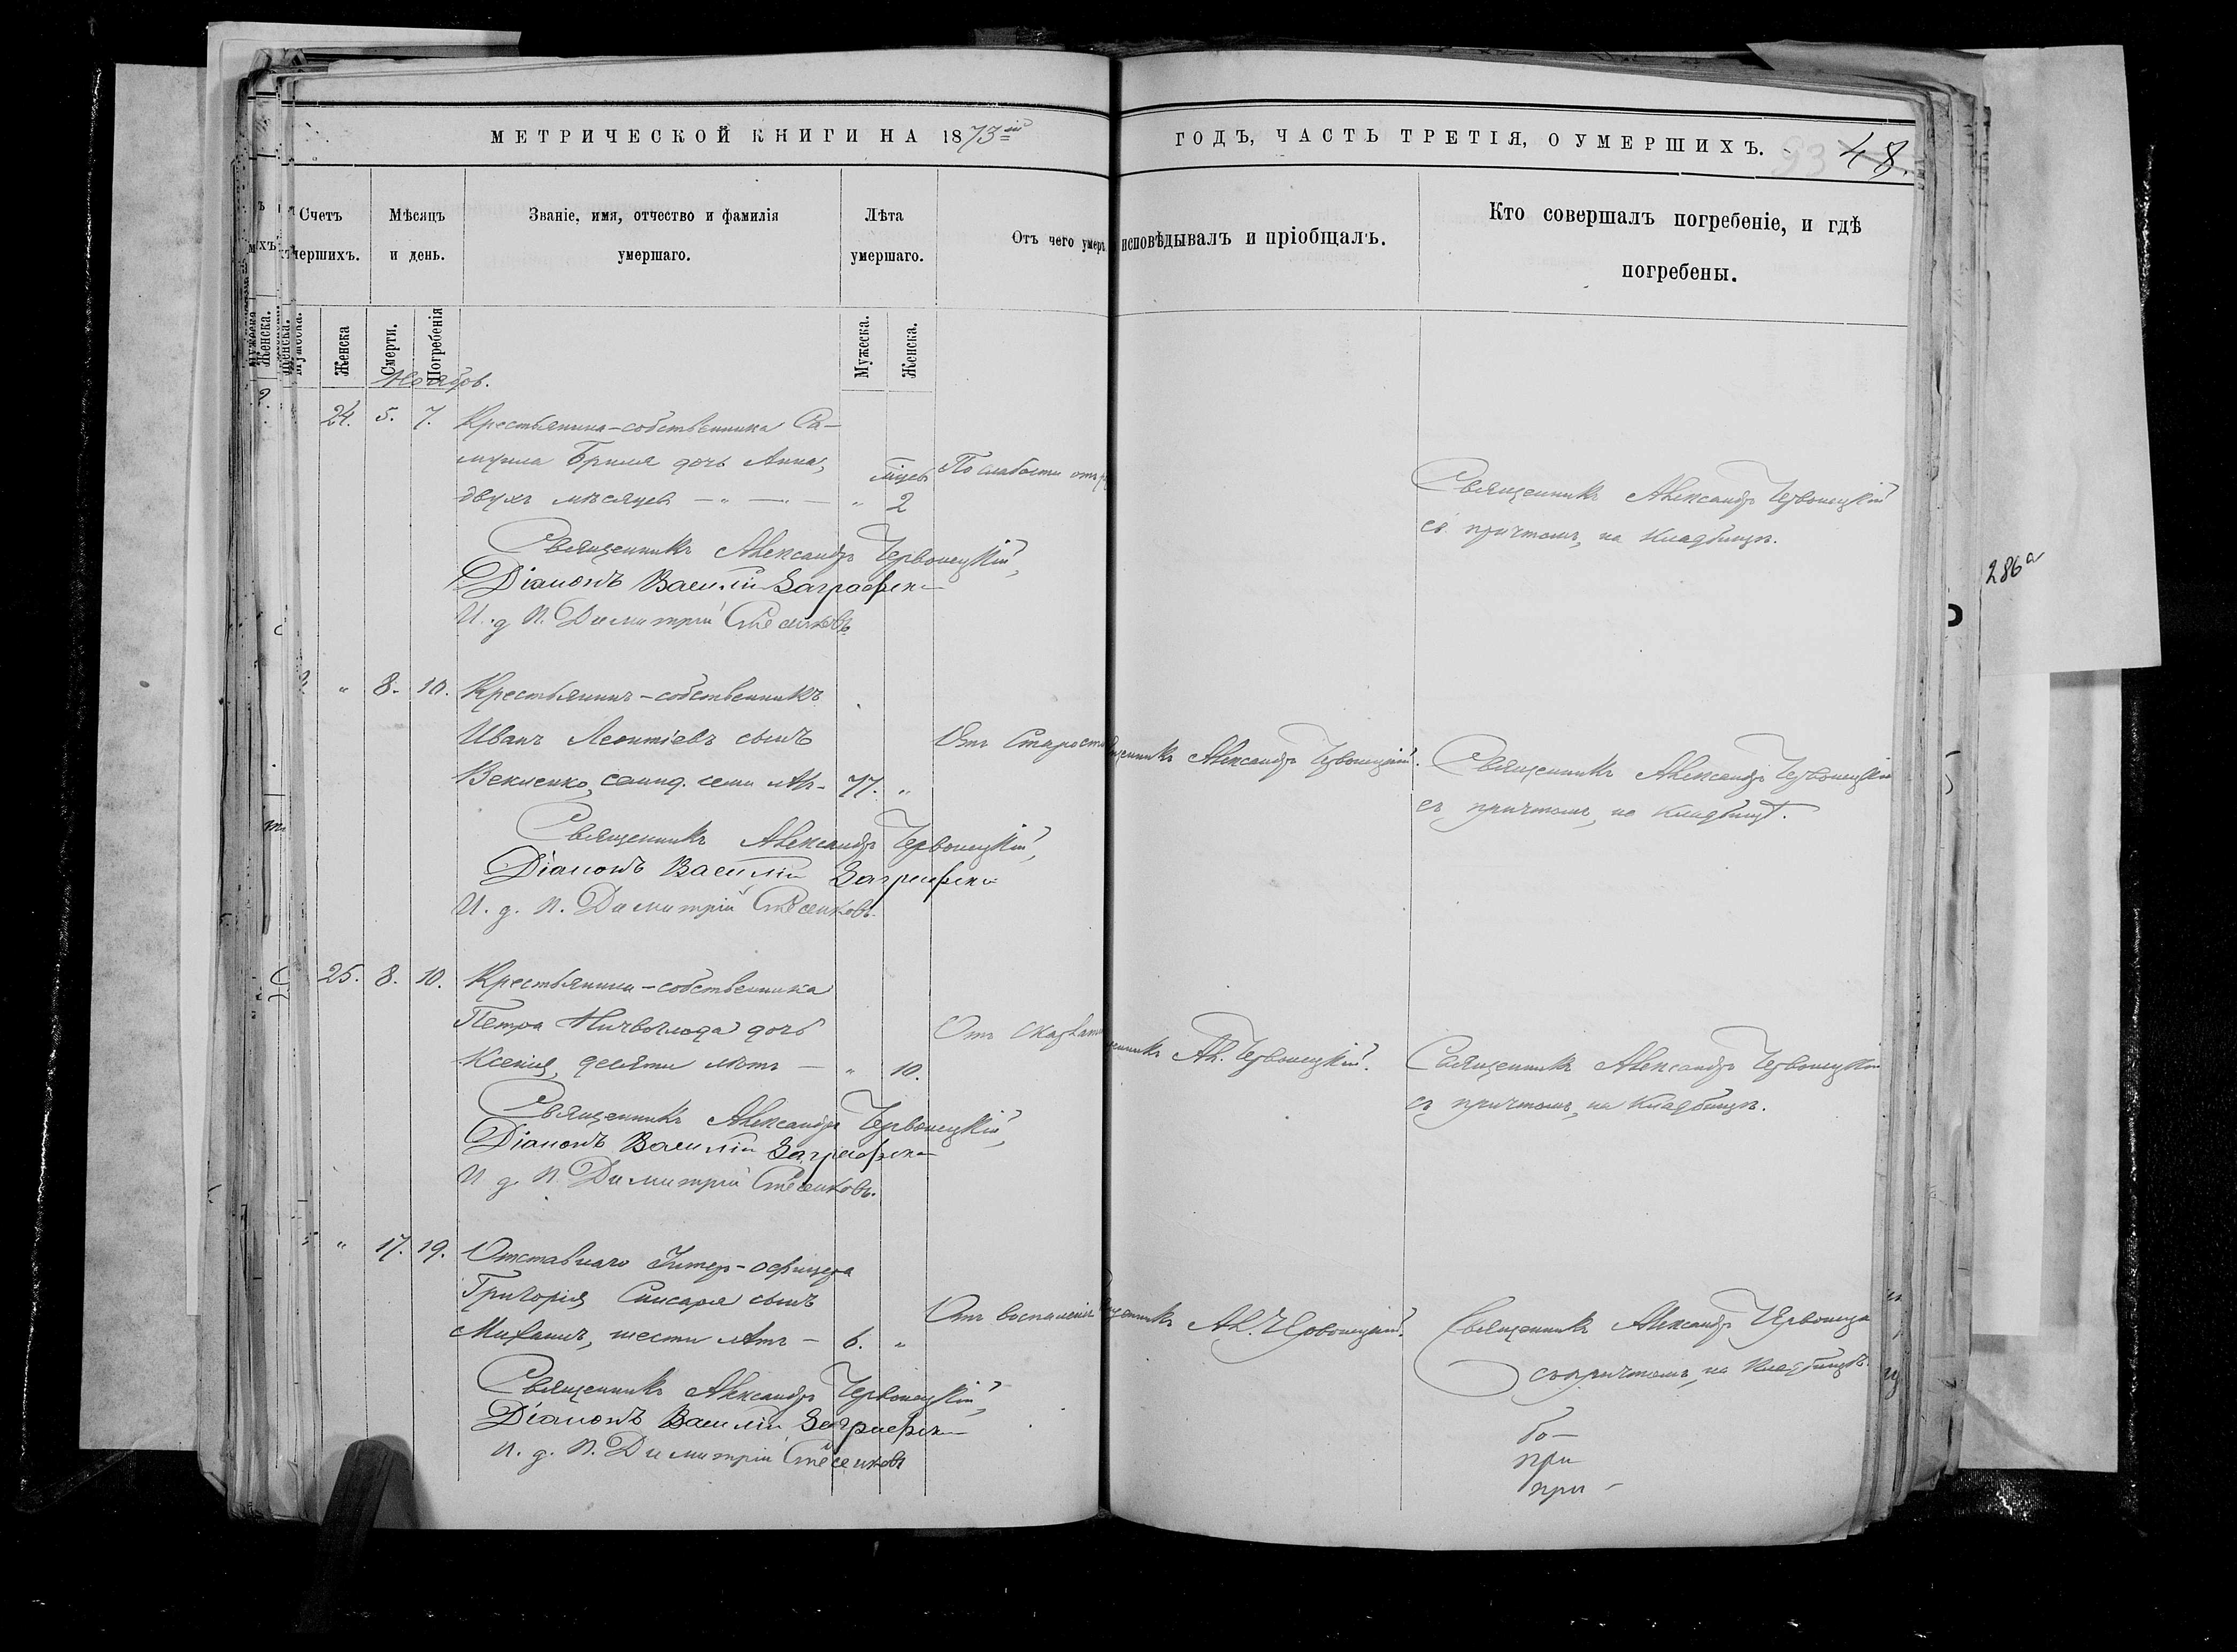 МЕТРИЧЕСКОЙ КНИГИ НА 1873ій
ГОДЪ, ЧАСТЬ ТРЕТІЯ, О УМЕРШИХЪ.
48.
Счетъ
мершихъ.
Мѣсяцъ
и день.
Званіе, имя, отчество и фамилія
умершаго.
Лѣта
умершаго.
Отъ чего умеръ
исповѣдывалъ и пріобщалъ.
Кто совершалъ погребеніе, и гдѣ
погребены.
Женска
Смерти.
Погребенія
Мужеска.
Женска.
Ноябрь.
24. 5. 7. Крестьянина-собственника Са-
муила Бриля дочь Анна,
двухъ мѣсяцевъ „ 2
По слабости отъ
Священникъ Александръ Червонецкій
съ причтомъ, на кладбищѣ.
Священникъ Александръ Червонецкій,
Діаконъ Василій
И. д. П. Димитрій
„ 8. 10. Крестьянинъ-собственникъ
Иванъ Леонтіевъ сынъ
Векленко, семид. семи лѣтъ 77. „
Отъ старости
щенникъ Александръ Червонецкій.
Священникъ Александръ Червонецкій
съ причтомъ, на кладбищѣ.
Священникъ Александръ Червонецкій,
Діаконъ Василій
И. д. П. Димитрій
25. 8. 10. Крестьянина-собственника
Петра дочь
Ксенія, десяти лѣтъ — „ 10.
Отъ
енникъ Ал. Червонецкій.
Священникъ Александръ Червонецкій
съ причтомъ, на кладбищѣ.
Священникъ Александръ Червонецкій,
Діаконъ Василій
И. д. П. Димитрій
„ 17. 19. Отставнаго Унтер-офицера
Григорія Слисаря сынъ
Михаилъ, шести лѣтъ — 6. „
Отъ воспаленія
щенникъ Ал. Червонецкій.
Священникъ Александръ Червонецкій
съ причтомъ, на кладбищѣ.
Священникъ Александръ Червонецкій,
Діаконъ Василій
И. д. П. Димитрій
бо-
при
при -
286а